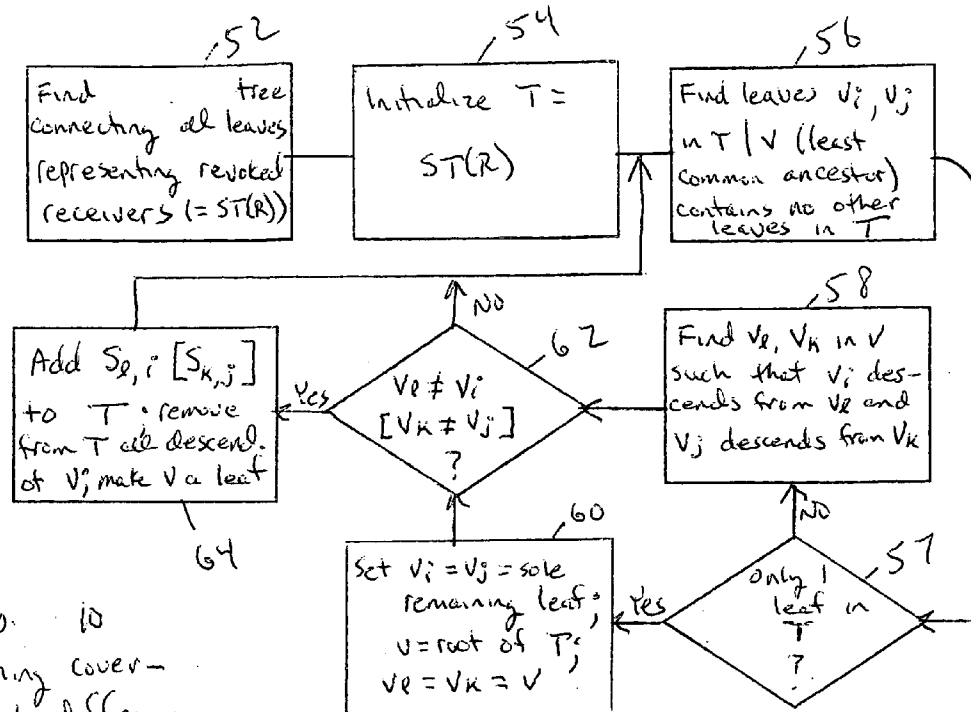 52
Find tree
connecting all leaves
representing revoked
receivers (= ST(R))
54
Initialize T =
ST(R)
56
Find leaves vi, vj
in T | V (least
common ancestor)
contains no other
leaves in T
58
Find vl, vk in v
such that vi des-
cends from vl and
vj descends from vk
62
NO
vl ≠ vi
[vk ≠ vj]
?
Yes
Add Sl,i [Sk,j]
to T; remove
from T all descend.
of v; make v a leaf
64
60
Set vi = vj = sole
remaining leaf;
v = root of T;
vl = vk = v
Yes
57
NO
only 1
leaf in
T
?
10
cover-